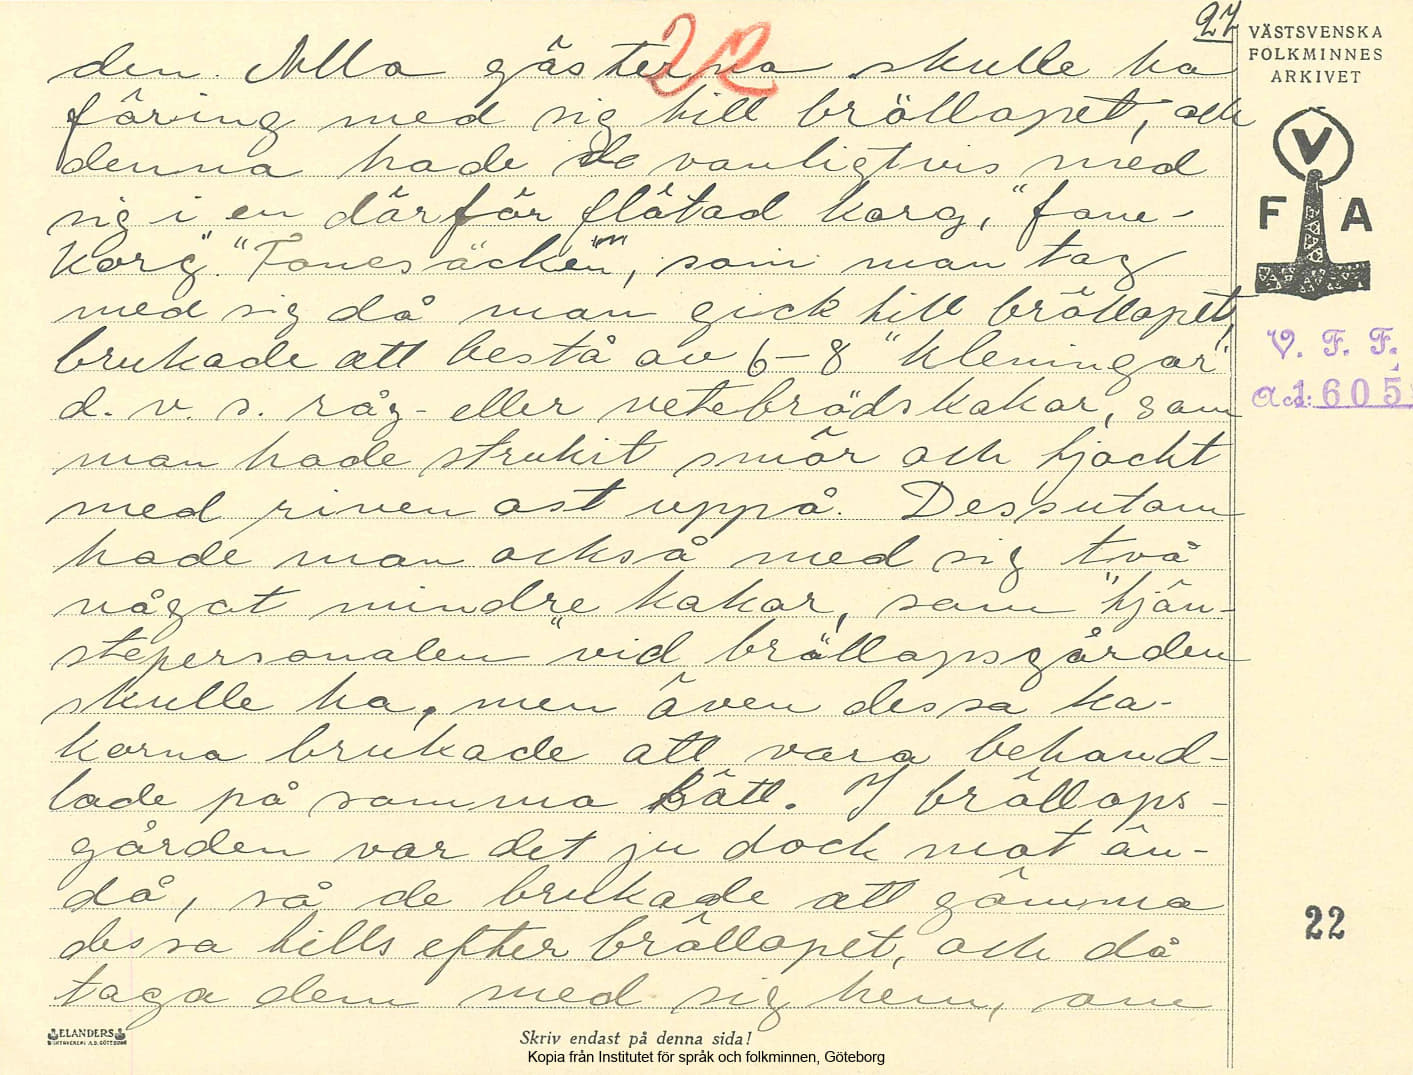 27
22
VÄSTSVENSKA
FOLKMINNES
ARKIVET
den. Alla gästerna skulle ha
föring med sig till bröllopet, och
denna hade de vanligtvis med
sig i en därför flätad korg, "fone-
korg". "Fonesäcken", som man tog
med sig då man gick till bröllopet,
brukade att bestå av 6-8 "kleningar"
d. v. s. råg- eller vetebrödskakor, som
man hade strukit smör och tjockt
med riven ost uppå. Dessutom
hade man också med sig två
något mindre kakor, som "tjän-
stepersonalen" vid bröllopsgården
skulle ha, men även dessa ka-
korna brukade att vara behand-
lade på samma sätt. I bröllops-
gården var det ju dock mat än-
då, så de brukade att gömma
dessa tills efter bröllopet, och då
taga dem med sig hem, om
V
F A
V. F. F.
Acc: 1605
22
ELANDERS
Skriv endast på denna sida!
Kopia från Institutet för språk och folkminnen, Göteborg